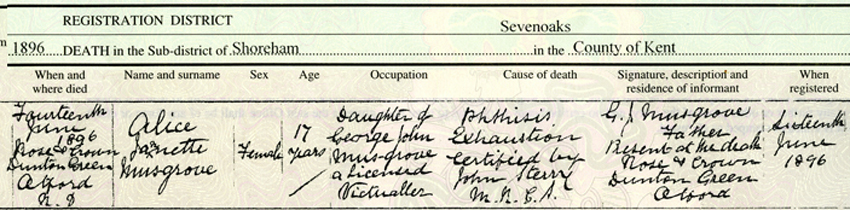 REGISTRATION DISTRICT
Sevenoaks
1896 DEATH in the Sub-district of Shoreham in the County of Kent
When and where died
Name and surname
Sex
Age
Occupation
Cause of death
Signature, description and residence of informant
When registered
Fourteenth
June
1896
Rose & Crown
Dunton Green
Otford
R.D
Alice
Janette
Musgrove
Female
17
years
Daughter of
George John
Musgrove
a Licensed
Victualler
Phthisis
Exhaustion
Certified by
John Sterry
M.R.C.S.
G. J Musgrove
Father
Present at the death
Rose & Crown
Dunton Green
Otford
Sixteenth
June
1896